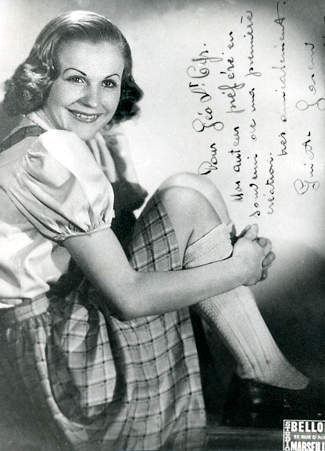 Pour Géo
Mon auteur préféré en
souvenir de ma première
création.
très amicalement.
BELLO
12 RUE D'AI
MARSEILL